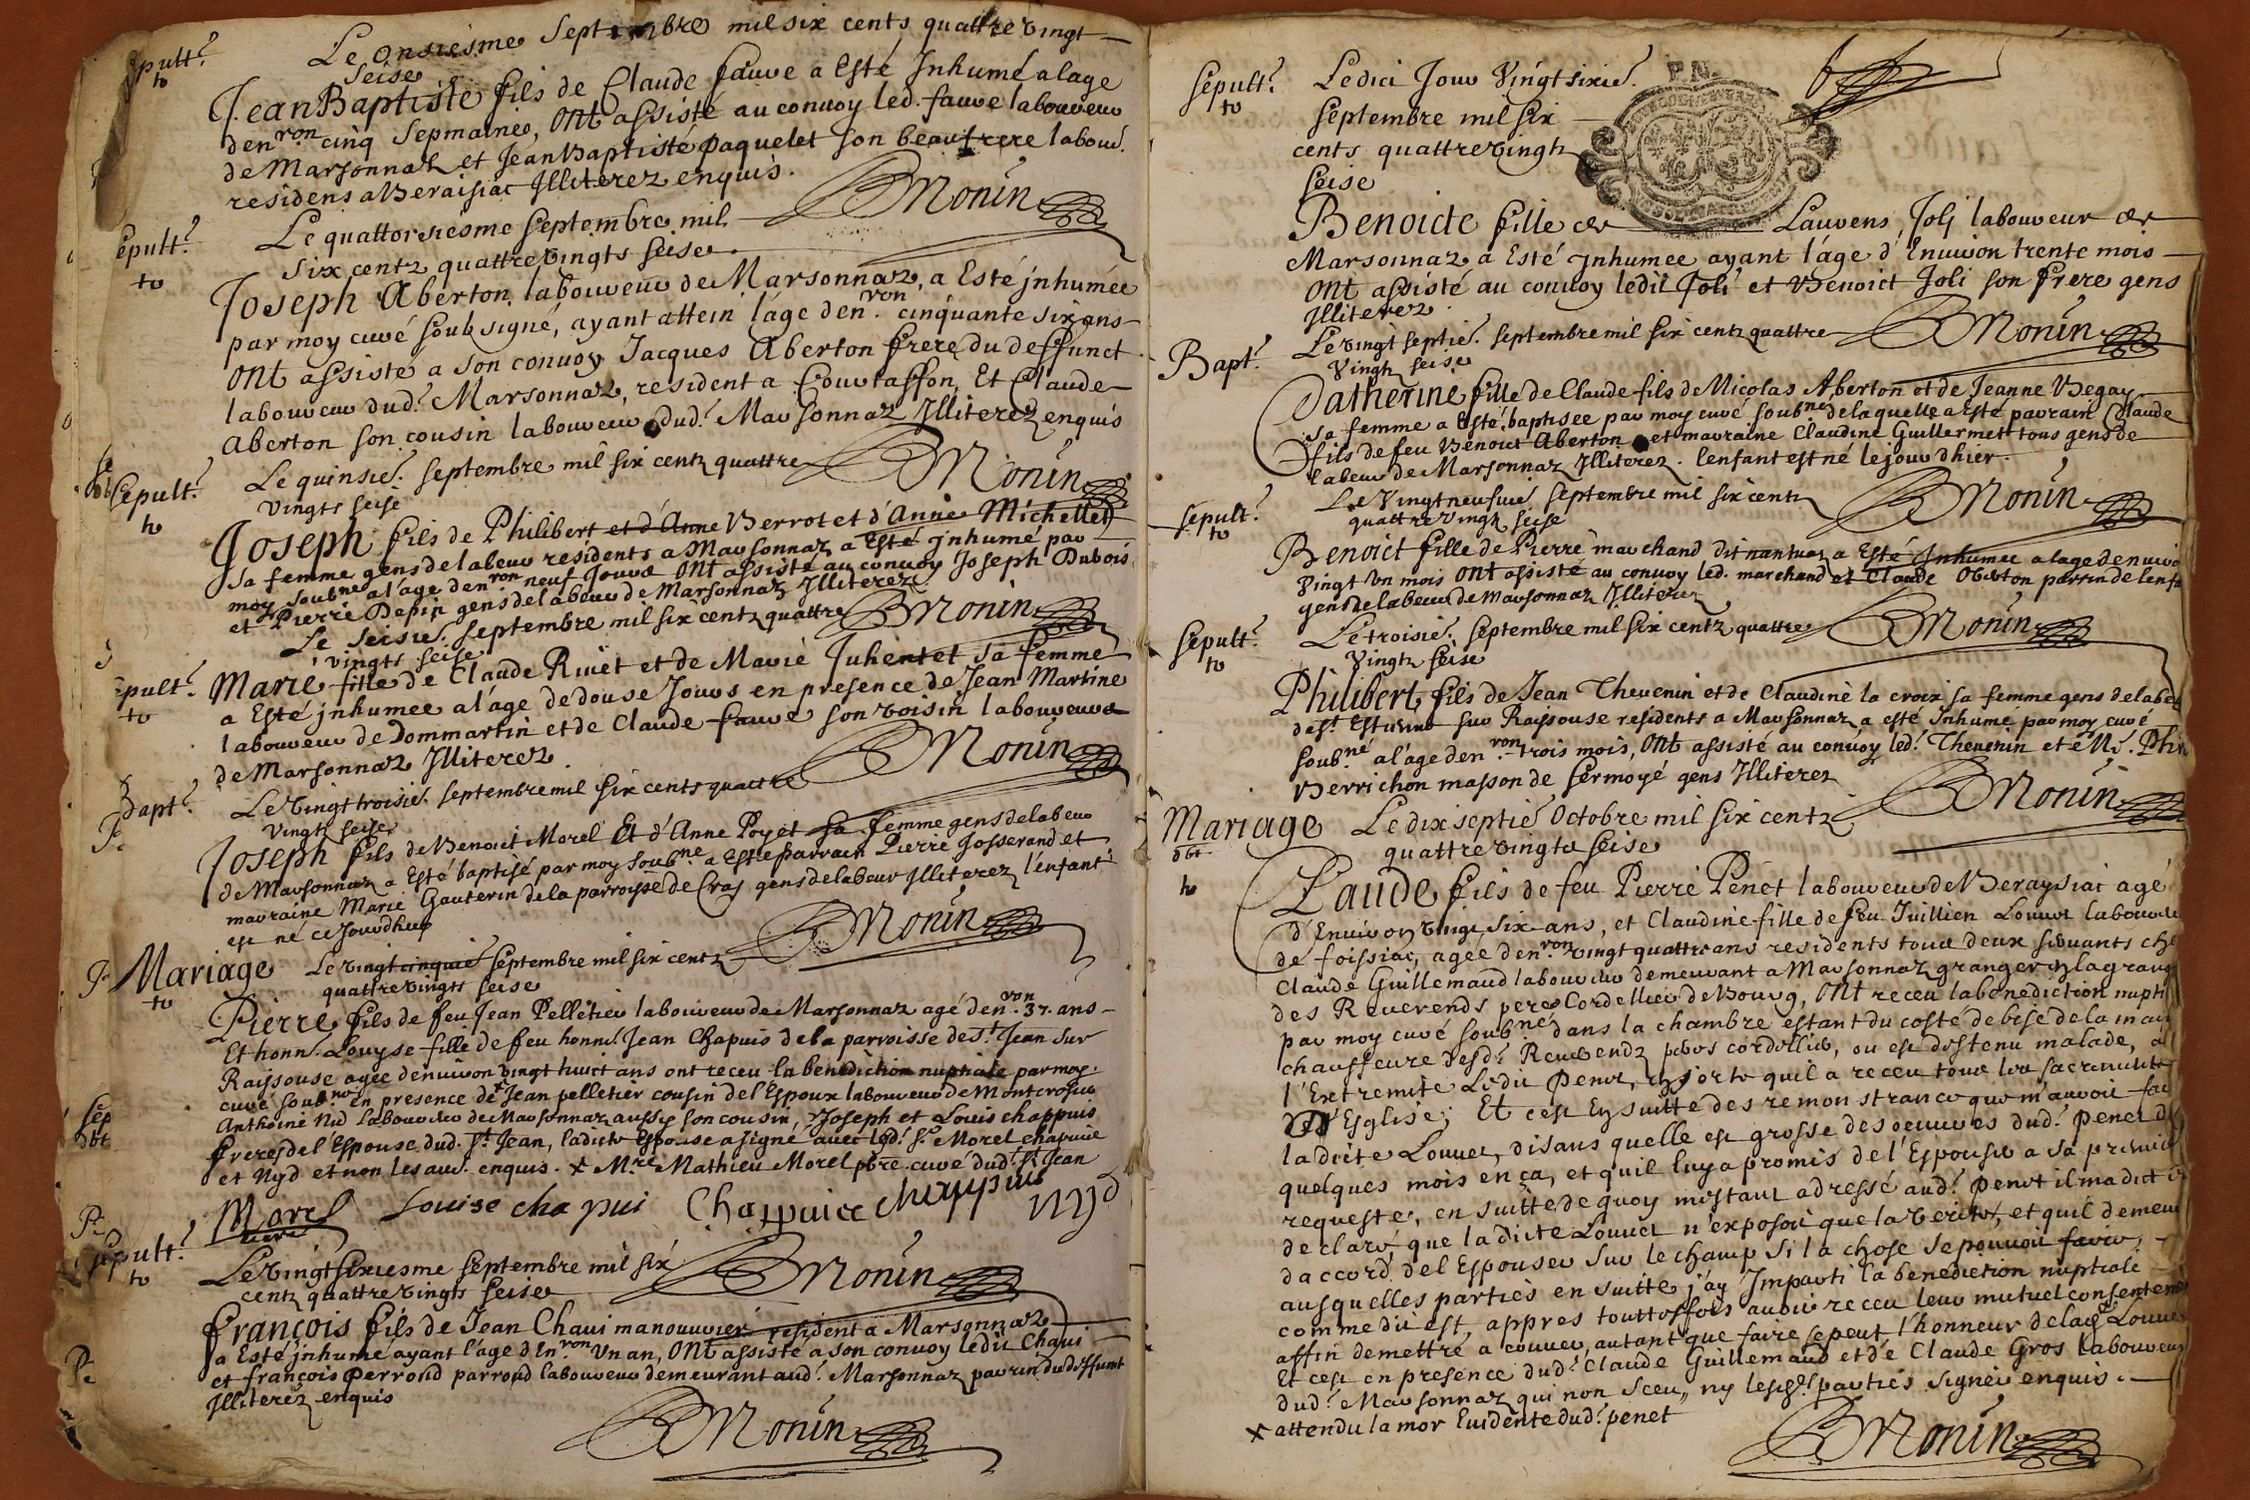 Sepult.e
to
Le onsiesme Septembre mil six cents quattre vingt
seise
Jean Baptiste fils de Claude fauve a Esté Inhumé a lage
denvron cinq sepmaines, Ont assisté au convoy led. fauve laboureur
de Marsonnas et Jean Baptiste paquelet son beaufrere labour.
residens a Beraisiat Illiterez enquis.
BMonin
Sepult.e
to
Le quattorsiesme septembre mil
six centz quattrevingts seise
Joseph Aberton laboureur de Marsonnaz, a Esté jnhumée
par moy curé soub signé, ayant attein lage denvron cinquante six ans
Ont assisté a son convoy Jacques Aberton frere du deffunct
laboureur dud.t Marsonnaz, resident a Courtaffon, Et Claude
Aberton son cousin laboureur dud.t Marsonnaz Illiterez enquis
BMonin
Sepult.e
to
Le quinsie. septembre mil six centz quattre
vingts seise
Joseph fils de Philibert et d'Anne Berrot et d'Anne Michellet
sa femme gens de labeur residents a Marsonnaz a Esté jnhumé par
moy soub.né a l'age denvron neuf Jours Ont assisté au convoy Joseph Dubois
et Pierre Depin gens de labeur de Marsonnaz Illiterez
BMonin
Sepult.e
to
Le seisie. septembre mil six centz quattre
vingts seise
Marie fille de Claude Rivet et de Marie Juhentet sa femme
a Esté jnhumee a l'age de douse Jours en presence de Jean Martine
laboureur de Dommartin et de Claude fauve son voisin laboureur
de Marsonnaz Illiterez.
BMonin
Bapt.e
Le vingt troisie. septembre mil six cents quattre
vingtz seise
Joseph fils de Benoict Morel Et d'Anne Poyet sa femme gens de labeur
de Marsonnaz a Esté baptisé par moy soub.né a Esté parrain Pierre Josserand et
marraine Marie Gauterin de la parroisse de Cras gens de labeur Illiterez l'enfant
est né ce Jourdhuy
BMonin
Mariage
to
Le vingt cinquie septembre mil six centz
quattrevingts seise
Pierre fils de feu Jean Pelletier laboureur de Marsonnaz agé denvron 37. ans
Et honn. Louyse fille de feu honn. Jean Chapuis de la parroisse de St Jean sur
Raissouse agee denuiron vingt huict ans ont receu la benediction nuptiale par moy
curé soub.né en presence de × Jean pelletier cousin del Espoux laboureur de Montcrosier
Anthoine Nid laboureur de Marsonnaz aussy son cousin, Joseph et Louis chappuis
freres de l'Espouse dud. St Jean, ladicte Espouse a signé avec led. Sr Morel chapuis
et Nyd et non les au. enquis. × Mre Mathieu Morel pbre curé dud. St Jean
Morel Louise cha pui Chappuice Chappuis nyd
curé
BMonin
Sepult.e
to
Le vingt sixiesme septembre mil six
centz quattrevingts seise
François fils de Jean Chavi manouvrier resident a Marsonnaz
a Esté jnhumé ayant l'age d'Envron Un an, Ont assisté a son convoy ledit Chavi
et françois Perroud parroud laboureur demeurant aud.t Marsonnaz parrin du deffunt
Illiterez enquis
BMonin
Sepult.e
to
Ledici Jour Vingt sixie.
septembre mil six
cents quattrevingtz
seise
P.N.
Benoicte fille de Laurens Joli laboureur de
Marsonnaz a Esté jnhumee ayant l'age d'Enuiron trente mois
Ont assisté au convoy ledit Joli et Benoict Joli son frere gens
Illiterez
BMonin
Bapt.e
Le vingt septie. septembre mil six centz quattre
Vingtz seise
Catherine fille de Claude fils de Nicolas Aberton et de Jeanne Begay
sa femme a Esté baptisee par moy curé soub.né de laquelle a Esté parrain Claude
fils de feu Benoict Aberton et marraine Claudine Guillermet tous gens de
labeur de Marsonnaz Illiterez. l'enfant est né le jour dhier
BMonin
Sepult.e
to
Le Vingt neufvie septembre mil six centz
quattrevingtz seise
Benoict fille de Pierre marchand dit nantua a Esté Inhumee a lage denviro
Vingt Un mois Ont assisté au convoy led. marchand et Claude Oberton parrin de l'enfa
gens de labeur de Marsonnaz Illiterez
BMonin
Sepult.e
to
Le troisie. septembre mil six centz quattre
Vingtz seise
Philibert fils de Jean Thevenin et de Claudine la croix sa femme gens de labe
de St Estienne sur Raissouse residents a Marsonnaz a esté Inhume par moy curé
soub.né a l'age denvron trois mois, Ont assisté au convoy led.t Thevenin et Mr. Phi
Berrichon masson de sermoyé gens Illiterez
BMonin
Mariage
dbt
to
Le dix septie Octobre mil six centz
quattrevingtz seise
Claude fils de feu Pierre Penet laboureur de Beraysiat agé
d'Enuiron vingt six ans, et Claudine fille de feu Juillien Louvet laboureur
de foissiac, agée denvron vingt quattre ans residents tous deux servants che
Claude Guillemaud laboureur demeurant a Marsonnaz granger en la grang
des Reverends peres Cordelliers de Bourg, Ont receu la benediction nupti
par moy curé soub.né dans la chambre estant du costé de bise de la mai
chauffeure desd.t Reverendz peres cordelliers, ou est destenu malade, a
l'Extremité Ledit Penet, en sorte quil a receu tous les sacrements
de l'Esglise; Et cest En suitte des remonstrance que m'auroit fai
ladicte Louvet, disans quelle est grosse des oeuvres dud.t Penet d
quelques mois en ça, et quil luy a promis de l'Espouser a sa premie
requeste, en suitte de quoy m'estant adressé aud.t Penet il ma dict e
declaré que ladicte Louvet n'exposoit que la verité, et quil demeu
daccord del Espouser sur le champ si la chose se pouvoit faire,
ausquelles parties en suitte j'ay Imparti la benediction nuptiale
comme dit est, appres touttesfois avoir receu leur mutuel consenteme
affin de mettre a couver, autant que faire se peut l'honneur de lad. Louvet
Et cest en presence dud.t Claude Guillemaud et de Claude Gros laboureur
dud.t Marsonnaz qui non sceu, ny lesd. parties signer enquis.
× attendu la mor Euidente dud.t penet
BMonin